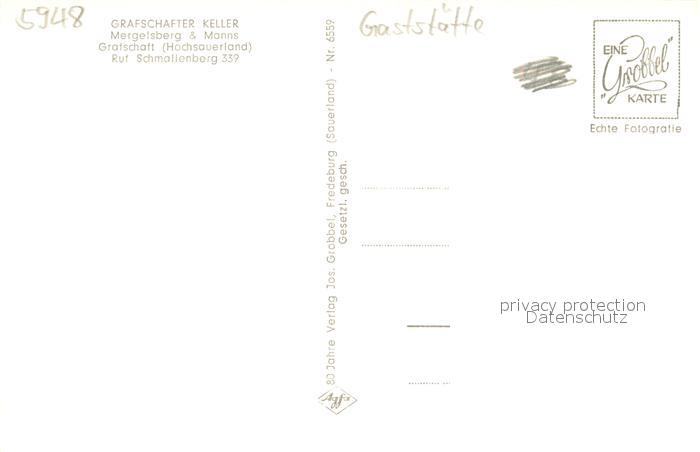 5948
GRAFSCHAFTER KELLER
Mergelsberg & Manns
Grafschaft (Hochsauerland)
Ruf Schmallenberg 339
80 Jahre Verlag Jos. Grobbel, Fredeburg (Sauerland) - Nr. 6559
Gesetzl. gesch.
Agfa
Gaststätte
EINE
„Grobbel"
KARTE
Echte Fotografie
privacy protection
Datenschutz